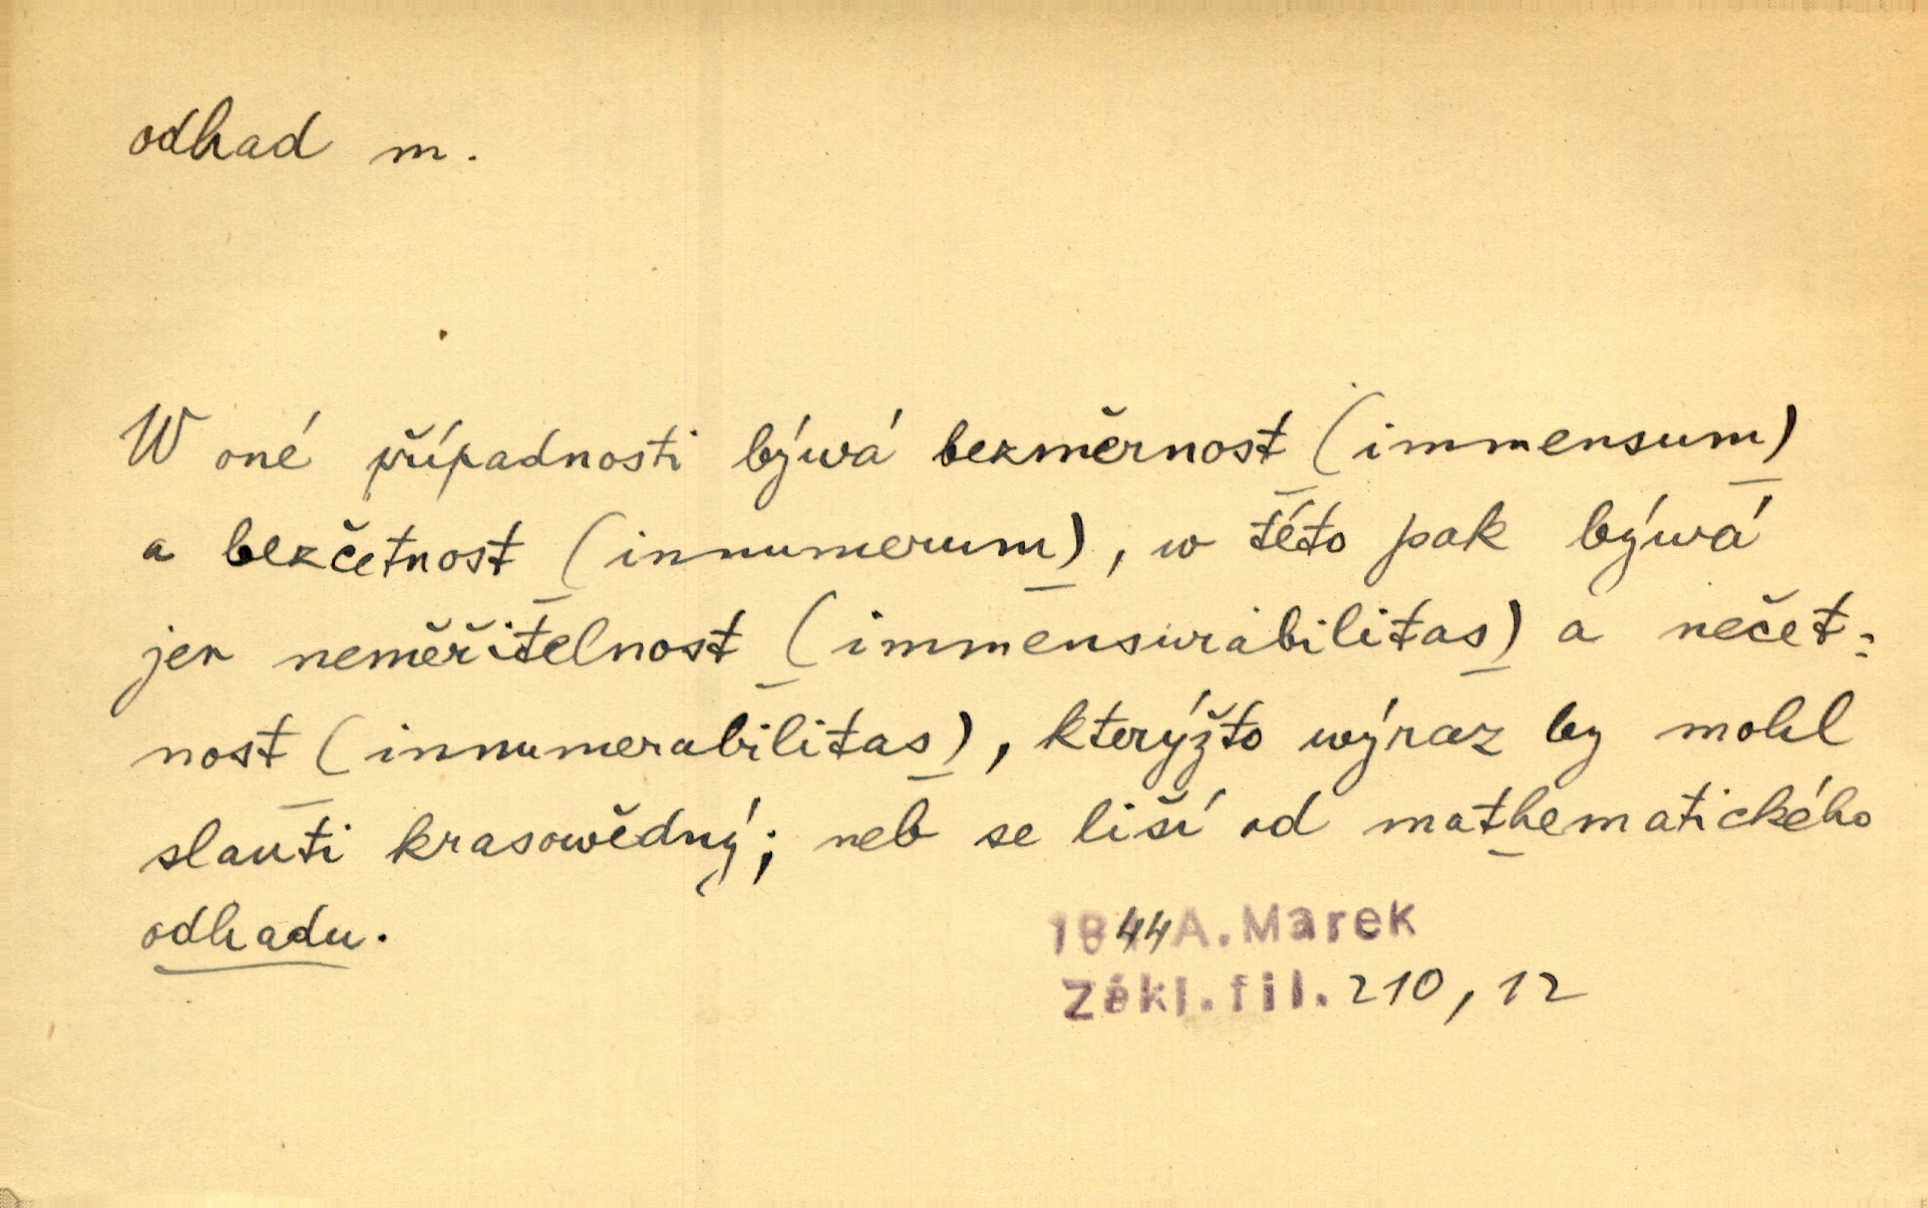 odhad m.
W oné případnosti býwá bezměrnost (immensum)
a bezčetnost (innumerum), w této pak býwá
jen neměřitelnost (immensurabilitas) a nečet-
nost (innumerabilitas), kterýžto wýraz by mohl
slauti krasowědný; neb se liší od mathematického
odhadu.
1844 A. Marek
Zákl. fil. 210, 12